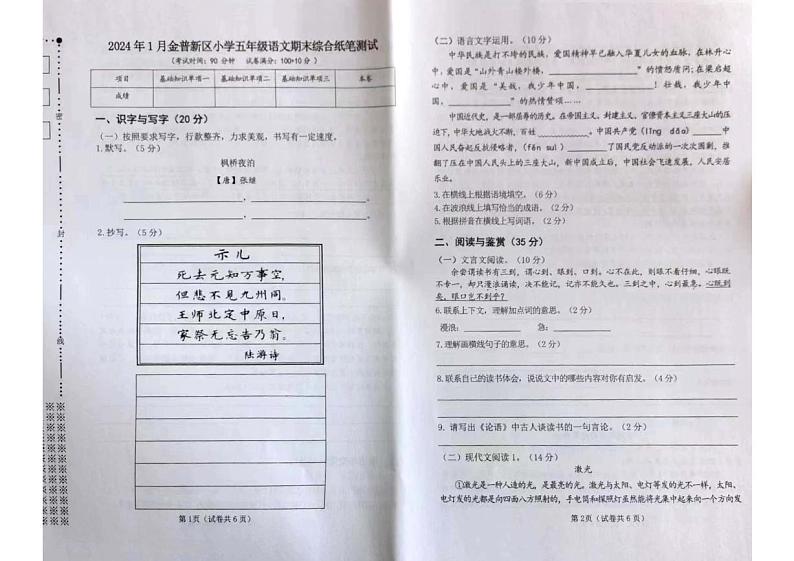 2024年1月金普新区小学五年级语文期末综合纸笔测试
（考试时间：90 分钟 试卷满分：100+10 分）
项目 基础知识单项一 基础知识单项二 基础知识单项三 本卷
成绩
一、识字与写字（20 分）
（一）按照要求写字，行款整齐，力求美观，书写有一定速度。
1.默写。（5 分）
枫桥夜泊
【唐】张继
____________，____________。
____________，____________。
2.抄写。（5 分）
示儿
死去元知万事空，
但悲不见九州同。
王师北定中原日，
家祭无忘告乃翁。
陆游诗
第 1页（试卷共 6 页）
密
封
线
（二）语言文字运用。（10 分）
中华民族是打不垮的民族，爱国精神早已融入华夏儿女的血脉，在林升心
中，爱国是“山外青山楼外楼，____________”的愤怒质问；在梁启超
心中，爱国是“美哉，我少年中国，____________！壮哉，我少年中
国，____________”的热情赞颂……
中国近代史，是一部屈辱的历史。在帝国主义、封建主义、官僚资本主义三座大山的压
迫下，中华大地战火不断，百姓____________。中国共产党（lǐng dǎo）______中
国人民奋起反抗侵略者，（fěn suì）________了国民党反动派的一次次围剿，推
翻了压在中国人民头上的三座大山，新中国成立后，中国社会飞速发展，人民安居
乐业。
3.在横线上根据语境填空。（6 分）
4.在波浪线上填写恰当的成语。（2 分）
5.根据拼音在横线上写词语。（2 分）
二、阅读与鉴赏（35 分）
（一）文言文阅读。（10 分）
余尝谓读书有三到，谓心到、眼到、口到。心不在此，则眼不看仔细，心眼既
不专一，却只漫浪诵读，决不能记，记亦不能久也。三到之中，心到最急。心既到
矣，眼口岂不到乎？
6.联系上下文，理解加点词的意思。（2 分）
漫浪：____________ 急：____________
7.理解画横线句子的意思。（2 分）
8.联系自己的读书体会，说说文中的哪些内容对你有启发。（4 分）
9. 请写出《论语》中古人谈读书的一句言论。（2 分）
（二）现代文阅读 1。（14 分）
激光
①激光是一种人造的光，是最亮的光。激光与太阳、电灯等发的光不一样，太阳、
电灯发的光都是向四面八方照射的，手电筒和探照灯虽然能将光集中起来向一个方向发
第 2页（试卷共 6 页）